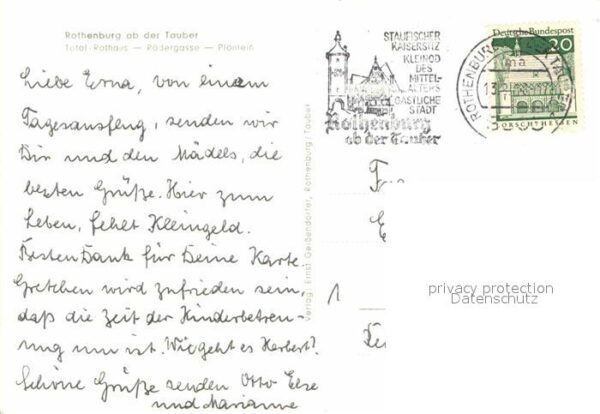 Rothenburg ob der Tauber
Total Rathaus — Rödergasse — Plönlein
Liebe Erna, von einem
Tagesausflug, senden wir
Dir und den Mädels, die
besten Grüße. Hier zum
Leben, fehlt Kleingeld.
Besten Dank für Deine Karte.
Gretchen wird zufrieden sein,
daß die Zeit der Kinderbetreu-
ung um ist. Wie geht es Herbert?
Schöne Grüße senden Otto Else
und Marianne
Verlag: Ernst Geißendörfer, Rothenburg/Tauber
STAUFISCHER
KAISERSITZ
KLEINOD
DES
MITTEL-
ALTERS
GASTLICHE
STADT
Rothenburg
ob der Tauber
ROTHENBURG
TAUBER
ma
13.
Deutsche Bundespost
20
LORSCH/HESSEN
1
privacy protection
Datenschutz